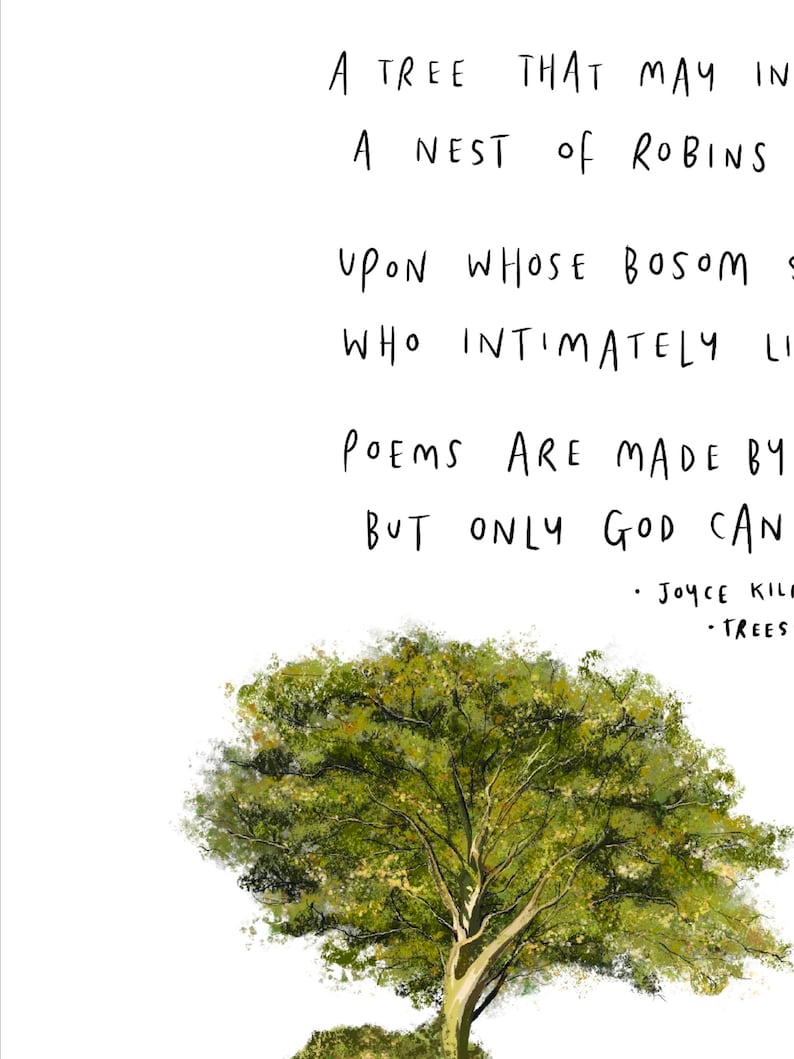 A TREE THAT MAY IN
A NEST OF ROBINS
UPON WHOSE BOSOM S
WHO INTIMATELY LI
POEMS ARE MADE BY
BUT ONLY GOD CAN
• JOYCE KIL
• TREES